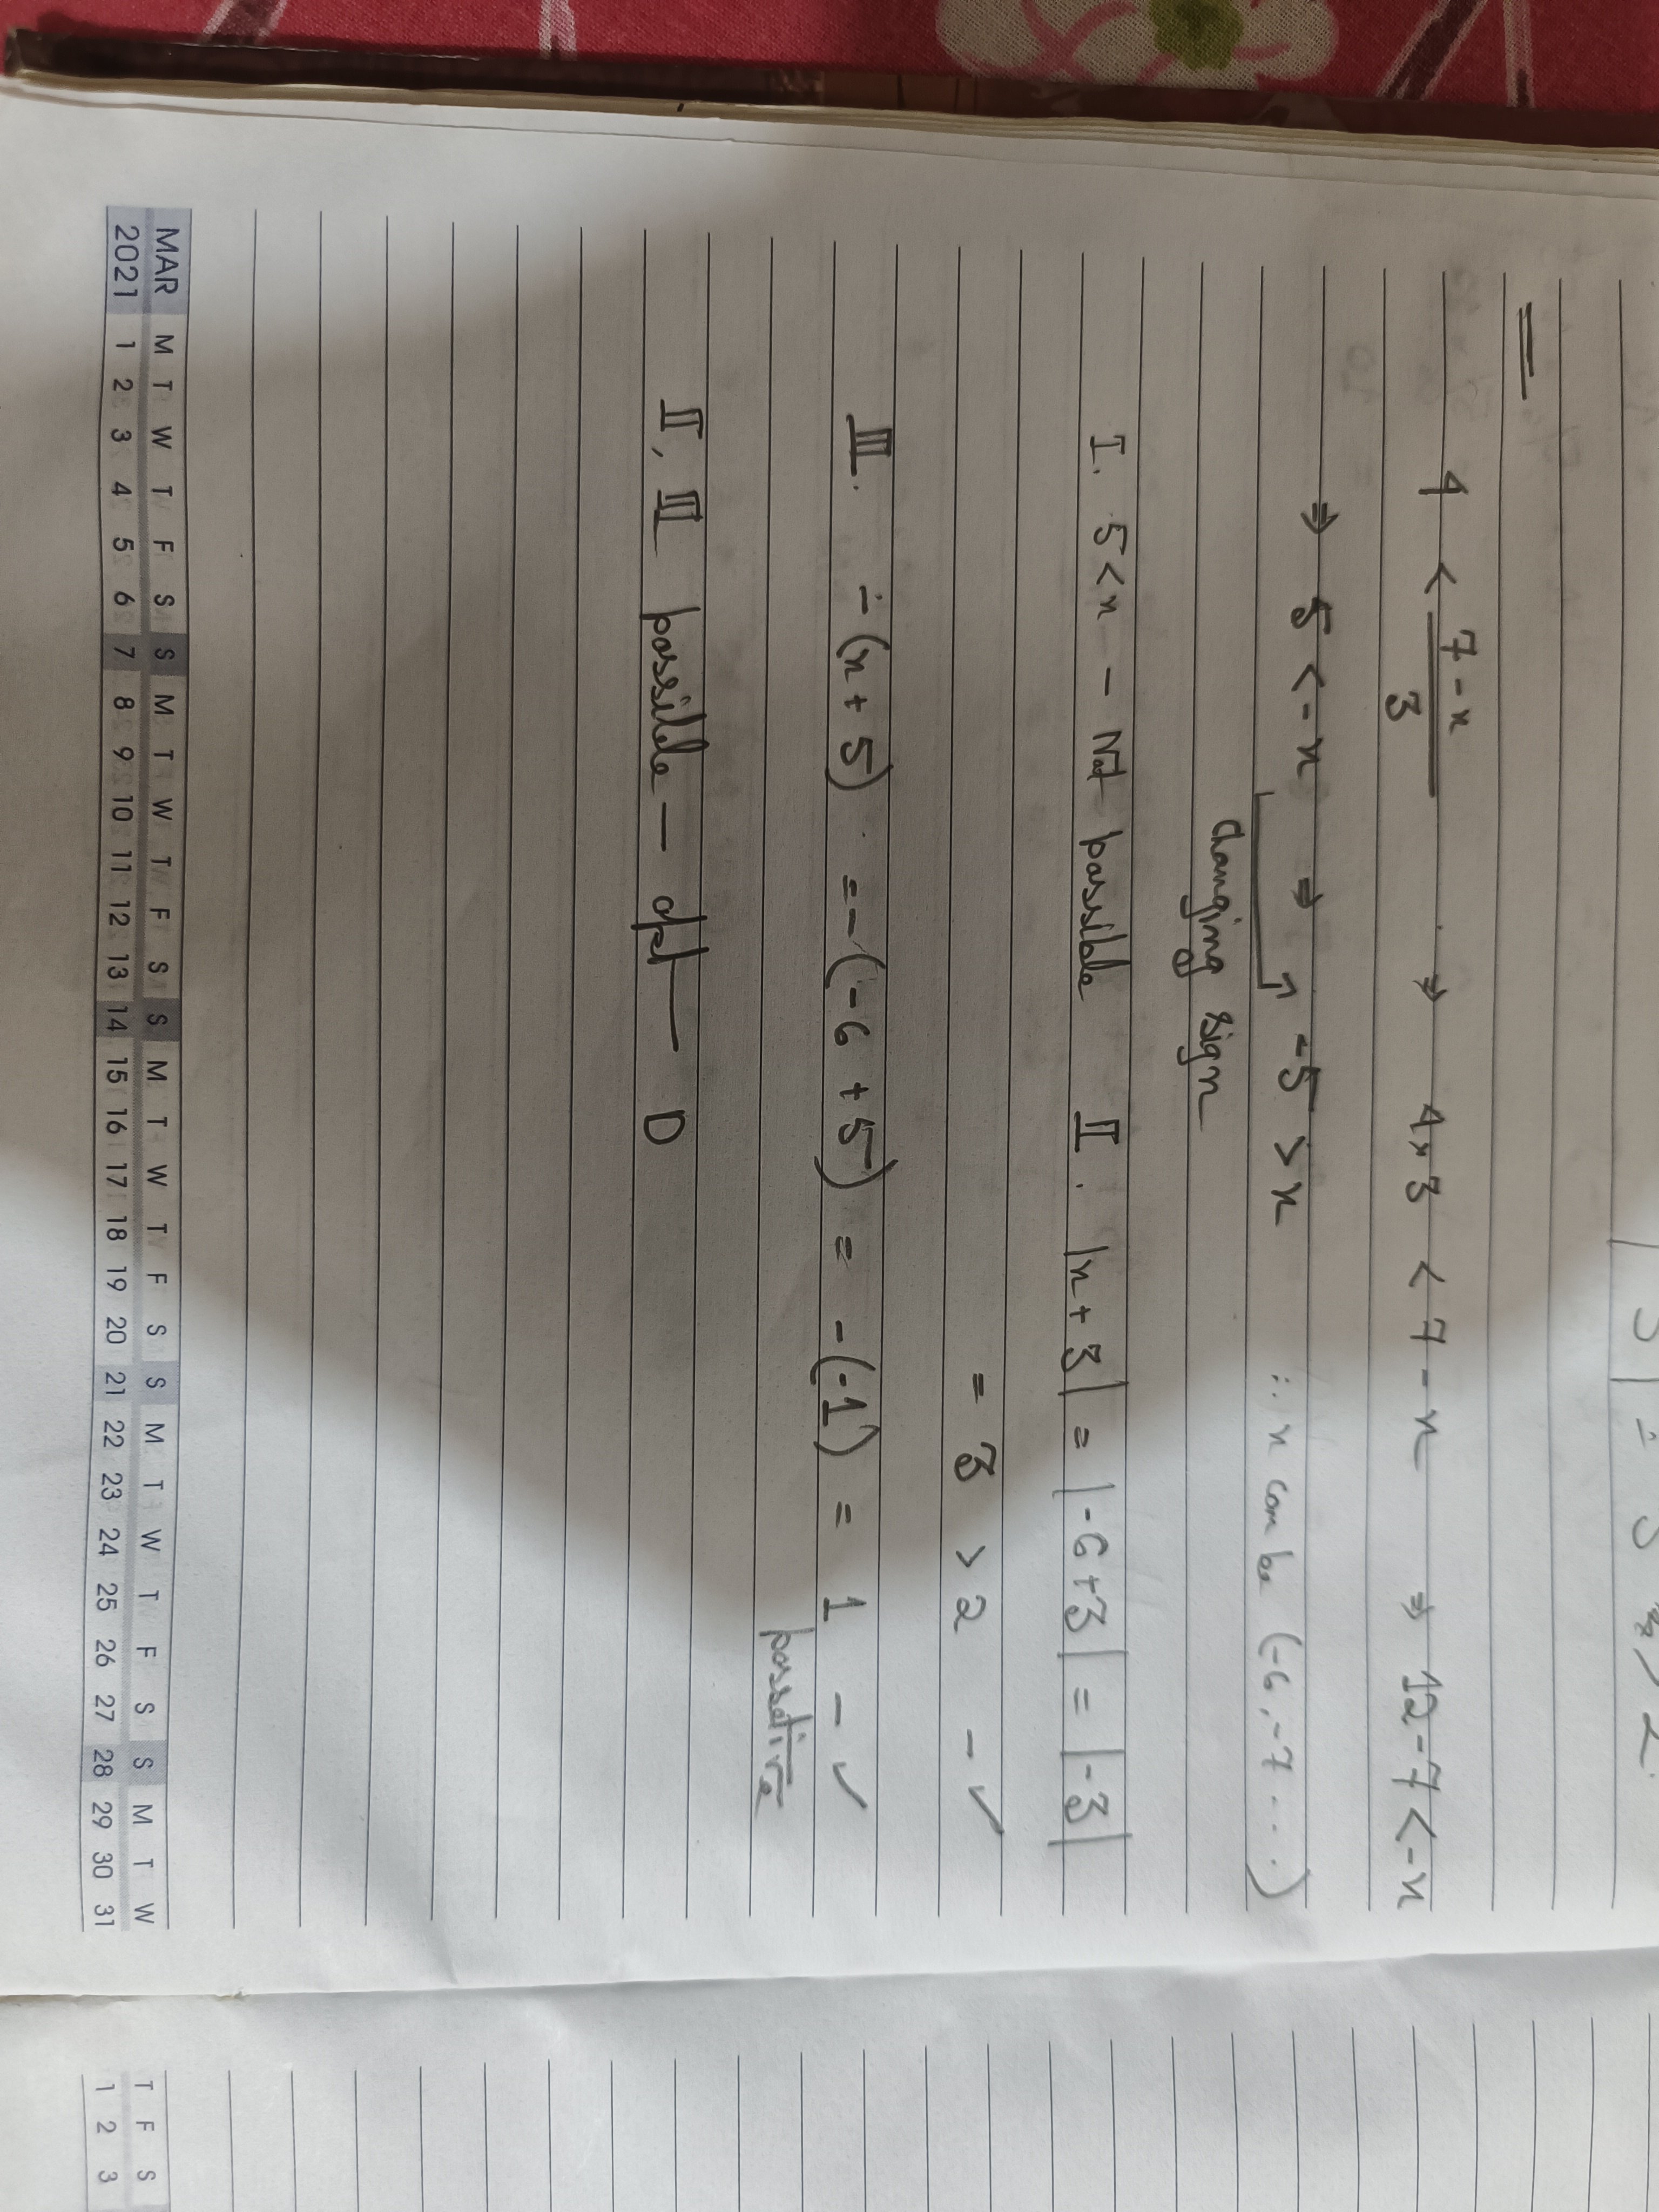 4 < 7-x / 3 ⇒ 4×3 < 7-x ⇒ 12-7 < -x
⇒ 5 < -x ⇒ -5 > x ∴ x can be (-6, -7 ...)
Changing sign
I. 5 < x - Not possible II. |x+3| = |-6+3| = |-3|
= 3 > 2 - ✓
III. -(x+5) = -(-6+5) = -(-1) = 1 - ✓
possetive
II, III possible - opt - D
MAR M T W T F S S M T W T F S S M T W T F S S M T W T F S S M T W
2021 1 2 3 4 5 6 7 8 9 10 11 12 13 14 15 16 17 18 19 20 21 22 23 24 25 26 27 28 29 30 31
T F S
1 2 3